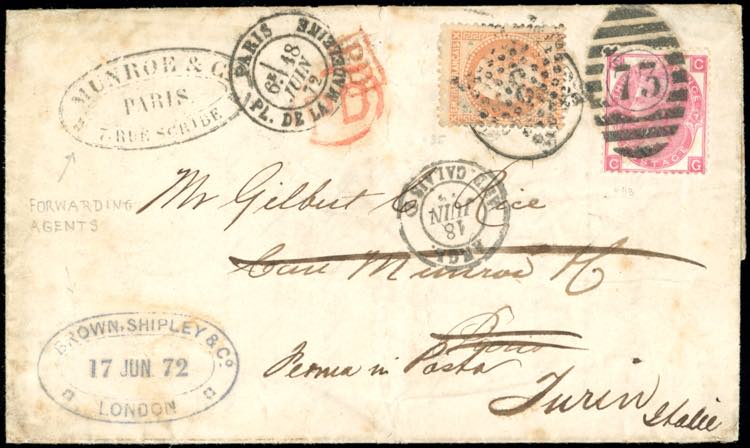 MUNROE & Co
PARIS
7. RUE SCRIBE
PARIS
1
6E
18
JUIN
72
PL. DE LA MADELEINE
PD
73
POSTAGE
C G
FORWARDING
AGENTS
18
JUIN
CALAIS
Mr Gilbert C. Rice
Care Munroe & Co
Paris
BROWN, SHIPLEY & Co.
17 JUN. 72
LONDON
Ferma in Posta
Turin
Italie